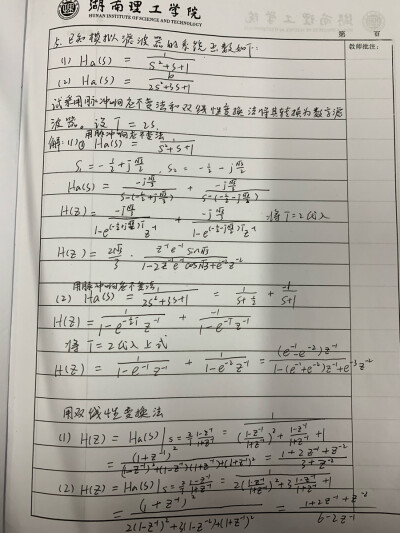 湖南理工学院
HUNAN INSTITUTE OF SCIENCE AND TECHNOLOGY
第 页
教师批注:
5. 已知模拟滤波器的系统函数如下:
(1) Ha(s) = 1/(s²+s+1)
(2) Ha(s) = 1/(2s²+3s+1)
试采用脉冲响应不变法和双线性变换法将其转换为数字滤
波器。设 T = 2s
用脉冲响应不变法,
解: (1) ① Ha(s) = 1/(s²+s+1)
S₁ = -1/2 + j√3/2, S₂ = -1/2 - j√3/2
Ha(s) = (-j√3/3)/(s-(-1/2+j√3/2)) + (-j√3/3)/(s-(-1/2-j√3/2))
H(z) = (-j√3/3)/(1-e^((-1/2+j√3/2)T) z⁻¹) + (-j√3/3)/(1-e^((-1/2-j√3/2)T) z⁻¹) 将T=2代入
H(z) = 2√3/3 · (z⁻¹e⁻¹ sin√3)/(1-2z⁻¹e⁻¹cos√3+e⁻²z⁻²)
用脉冲响应不变法,
(2) Ha(s) = 1/(2s²+3s+1) = 1/(s+1/2) + (-1)/(s+1)
H(z) = 1/(1-e^(-1/2 T) z⁻¹) + (-1)/(1-e^(-T) z⁻¹)
将 T=2代入上式
H(z) = 1/(1-e⁻¹z⁻¹) + 1/(1-e⁻²z⁻¹) = ((e⁻¹-e⁻²)z⁻¹)/(1-(e⁻¹+e⁻²)z⁻¹+e⁻³z⁻²)
用双线性变换法
(1) H(z) = Ha(s)|s=2/T (1-z⁻¹)/(1+z⁻¹) = 1/(((1-z⁻¹)/(1+z⁻¹))²+(1-z⁻¹)/(1+z⁻¹)+1)
= (1+z⁻¹)²/((1-z⁻¹)²+(1-z⁻¹)(1+z⁻¹)+(1+z⁻¹)²) = (1+2z⁻¹+z⁻²)/(3+z⁻²)
(2) H(z) = Ha(s)|s=2/T (1-z⁻¹)/(1+z⁻¹) = 1/(2((1-z⁻¹)/(1+z⁻¹))²+3(1-z⁻¹)/(1+z⁻¹)+1)
= (1+z⁻¹)²/(2(1-z⁻¹)²+3(1-z⁻²)+(1+z⁻¹)²) = (1+2z⁻¹+z⁻²)/(6-2z⁻¹)